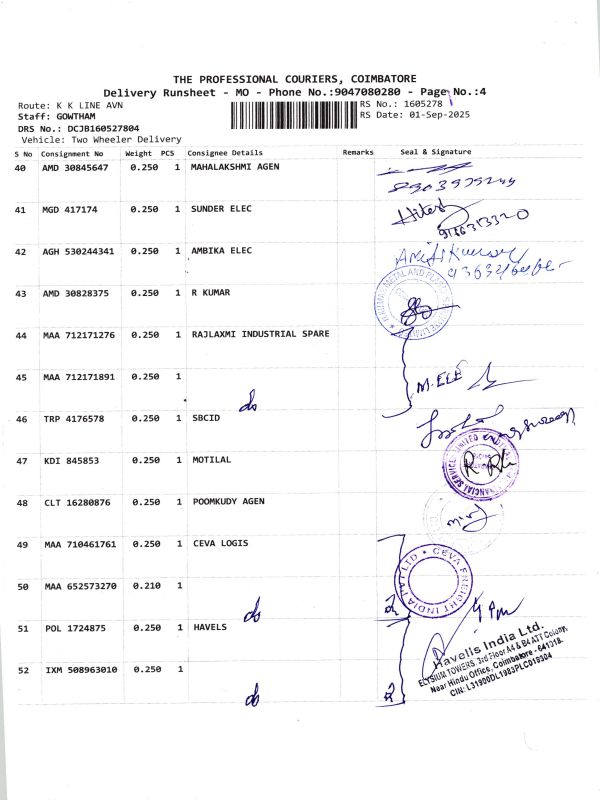 THE PROFESSIONAL COURIERS, COIMBATORE
Delivery Runsheet - MO - Phone No.:9047080280 - Page No.:4
Route: K K LINE AVN
RS No.: 1605278
Staff: GOWTHAM
RS Date: 01-Sep-2025
DRS No.: DCJB160527804
Vehicle: Two Wheeler Delivery
S No Consignment No Weight PCS Consignee Details Remarks Seal & Signature
40 AMD 30845647 0.250 1 MAHALAKSHMI AGEN
41 MGD 417174 0.250 1 SUNDER ELEC Hitesh
42 AGH 530244341 0.250 1 AMBIKA ELEC
43 AMD 30828375 0.250 1 R KUMAR
44 MAA 712171276 0.250 1 RAJLAXMI INDUSTRIAL SPARE
45 MAA 712171891 0.250 1 do M.ELE
46 TRP 4176578 0.250 1 SBCID
47 KDI 845853 0.250 1 MOTILAL
48 CLT 16280876 0.250 1 POOMKUDY AGEN
49 MAA 710461761 0.250 1 CEVA LOGIS
CEVA FREIGHT INDIA PVT LTD
50 MAA 652573270 0.210 1 do 2
51 POL 1724875 0.250 1 HAVELS
Havells India Ltd.
ELYSIUM TOWERS, 3rd Floor A4 & B4 ATT Colony,
Near Hindu Office, Coimbatore - 641018.
CIN: L31900DL1983PLC019304
52 IXM 508963010 0.250 1 do 2